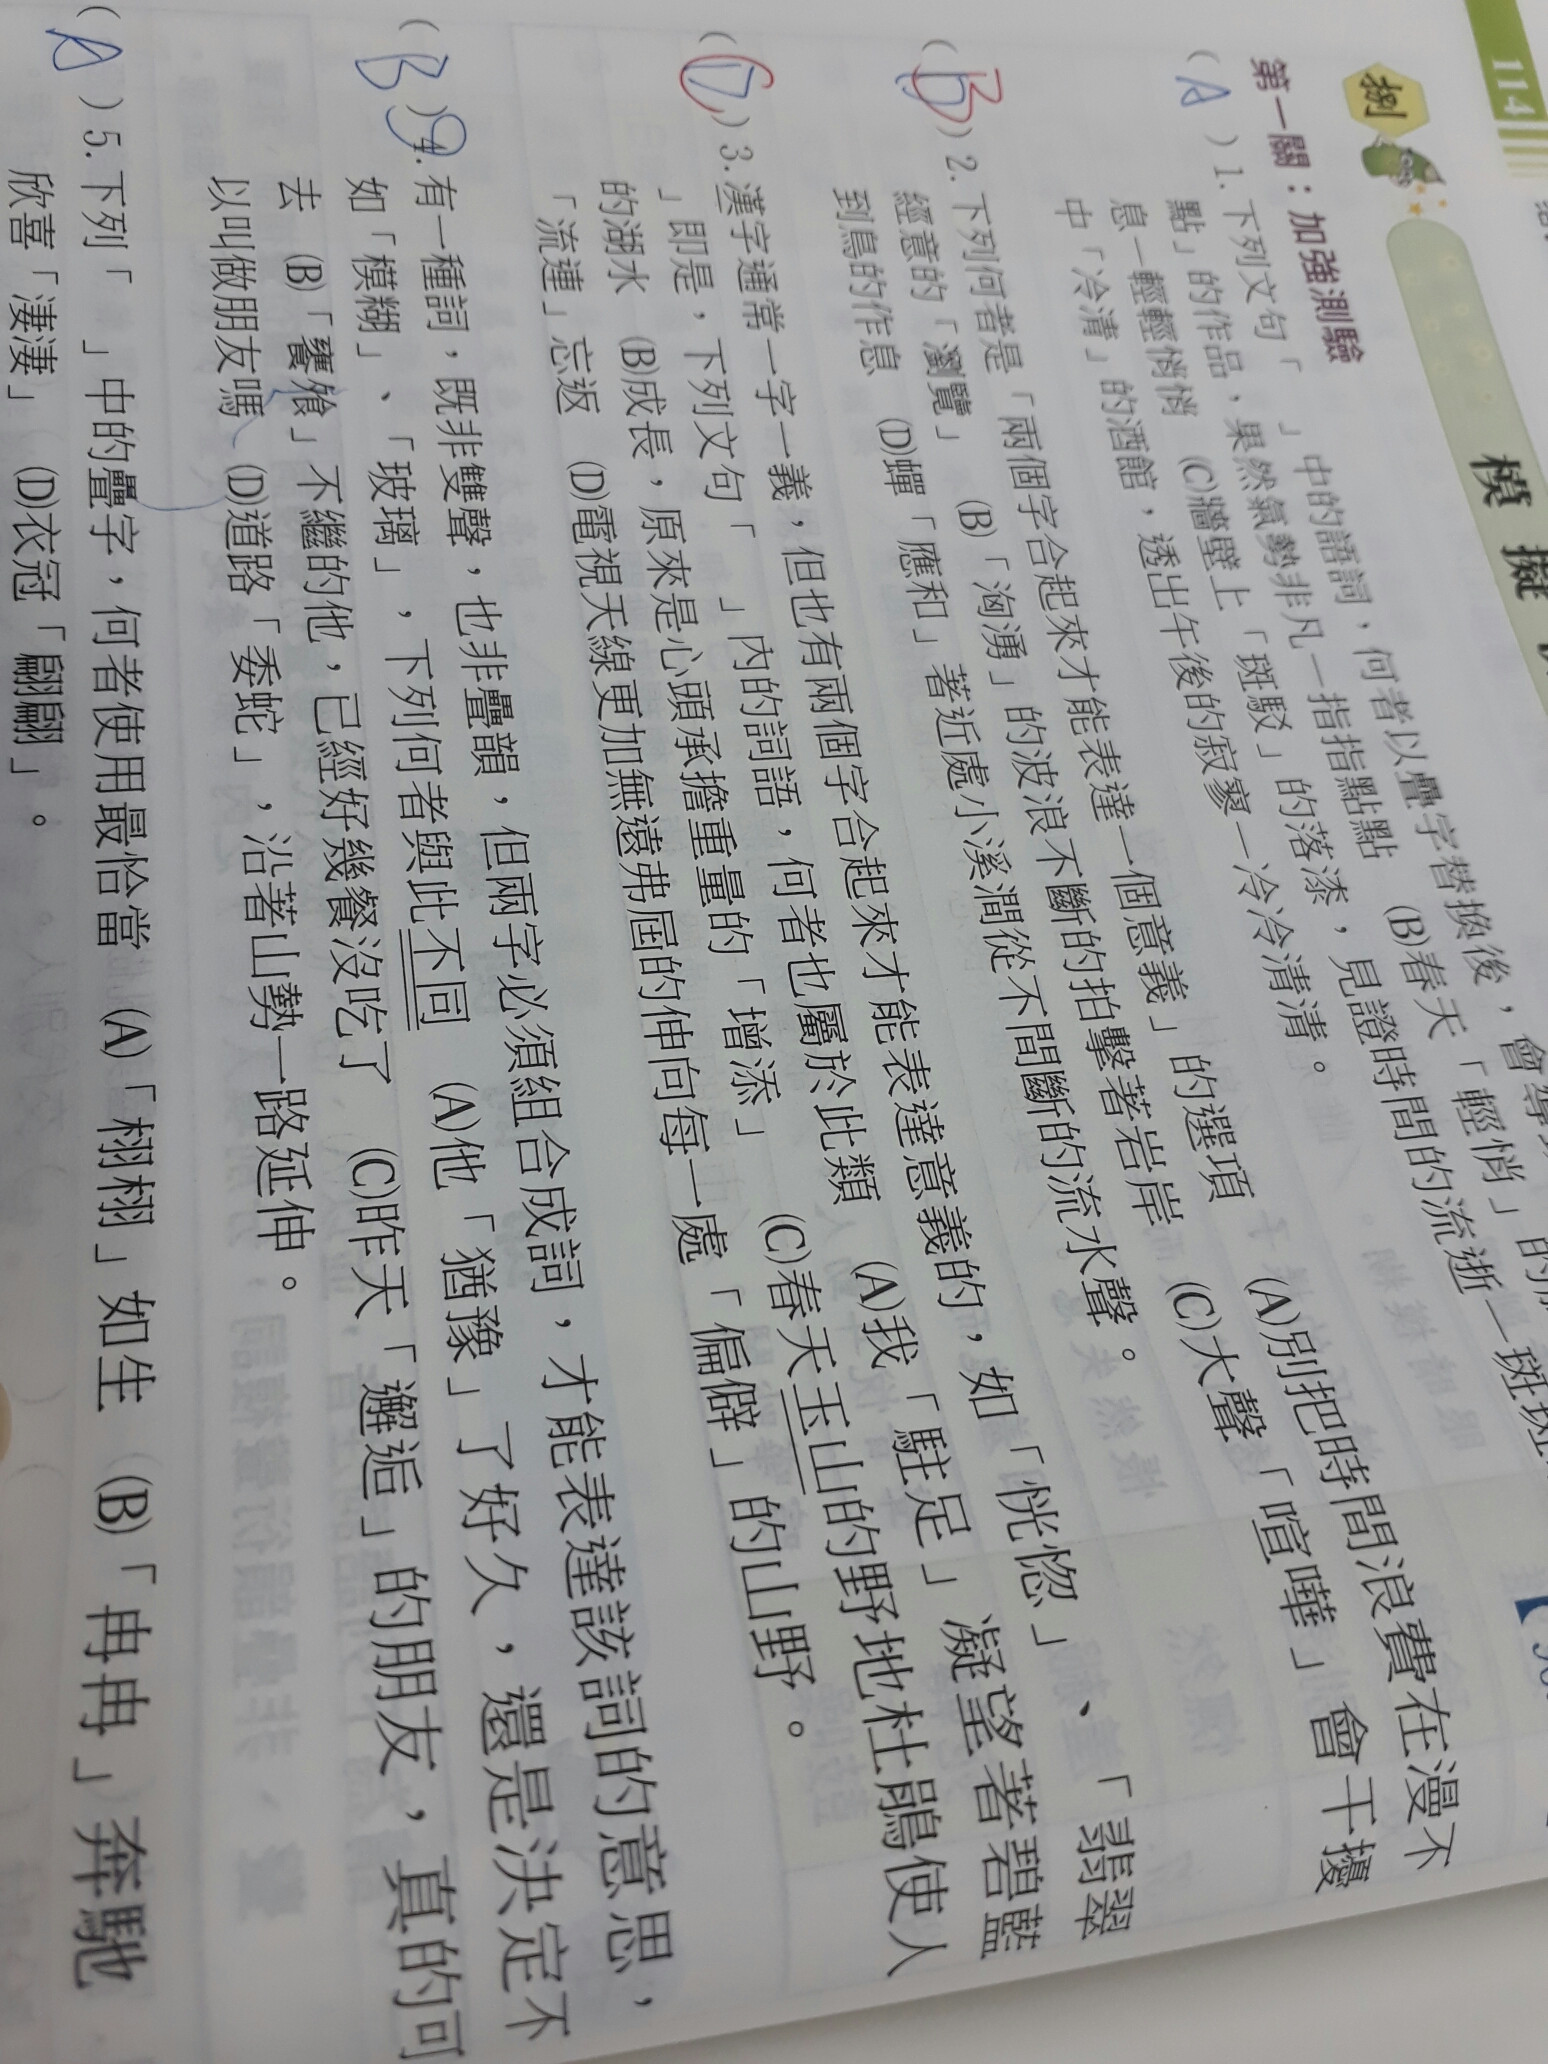 114
捌
模擬
第一關：加強測驗
( A )1.下列文句「　」中的語詞，何者以疊字替換後，會導
(A)別把時間浪費在漫不
點」的作品，果然氣勢非凡─指指點點　(B)春天「輕悄」的
息─輕輕悄悄　(C)牆壁上「斑駁」的落漆，見證時間的流逝─斑斑
中「冷清」的酒館，透出午後的寂寥─冷冷清清。
( B )2.下列何者是「兩個字合起來才能表達一個意義」的選項　(A)別把時間浪費在漫不
經意的「瀏覽」　(B)「洶湧」的波浪不斷的拍擊著岩岸　(C)大聲「喧嘩」會干擾
到鳥的作息　(D)蟬「應和」著近處小溪澗從不間斷的流水聲。
( D )3.漢字通常一字一義，但也有兩個字合起來才能表達意義的，如「恍惚」、「翡翠
」即是，下列文句「　」內的詞語，何者也屬於此類　(A)我「駐足」凝望著碧藍
的湖水　(B)成長，原來是心頭承擔重量的「增添」　(C)春天玉山的野地杜鵑使人
「流連」忘返　(D)電視天線更加無遠弗屆的伸向每一處「偏僻」的山野。
( B )4.有一種詞，既非雙聲，也非疊韻，但兩字必須組合成詞，才能表達該詞的意思，
如「模糊」、「玻璃」，下列何者與此不同　(A)他「猶豫」了好久，還是決定不
去　(B)「饔飧」不繼的他，已經好幾餐沒吃了　(C)昨天「邂逅」的朋友，真的可
以叫做朋友嗎　(D)道路「委蛇」，沿著山勢一路延伸。
( A )5.下列「　」中的疊字，何者使用最恰當　(A)「栩栩」如生　(B)「冉冉」奔馳
欣喜「淒淒」　(D)衣冠「翩翩」。